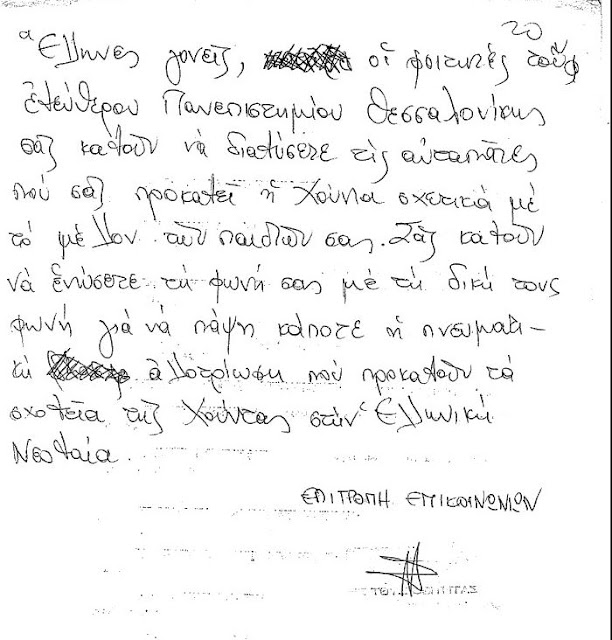 20
Ἕλληνες γονεῖς, οἱ φοιτητές τοῦ
ἐλεύθερου Πανεπιστημίου Θεσσαλονίκης
σᾶς καλοῦν νά διαλύσετε τίς αὐταπάτες
πού σᾶς προκαλεῖ ἡ Χούντα σχετικά μέ
τό μέλλον τῶν παιδιῶν σας. Σᾶς καλοῦν
νά ἑνώσετε τή φωνή σας μέ τή δική τους
φωνή γιά νά πάψη κάποτε ἡ πνευματι-
κή ἀλλοτρίωση πού προκαλοῦν τά
σχολεῖα τῆς Χούντας στήν Ἑλληνική
Νεολαία.
ΕΠΙΤΡΟΠΗ ΕΠΙΚΟΙΝΩΝΙΩΝ